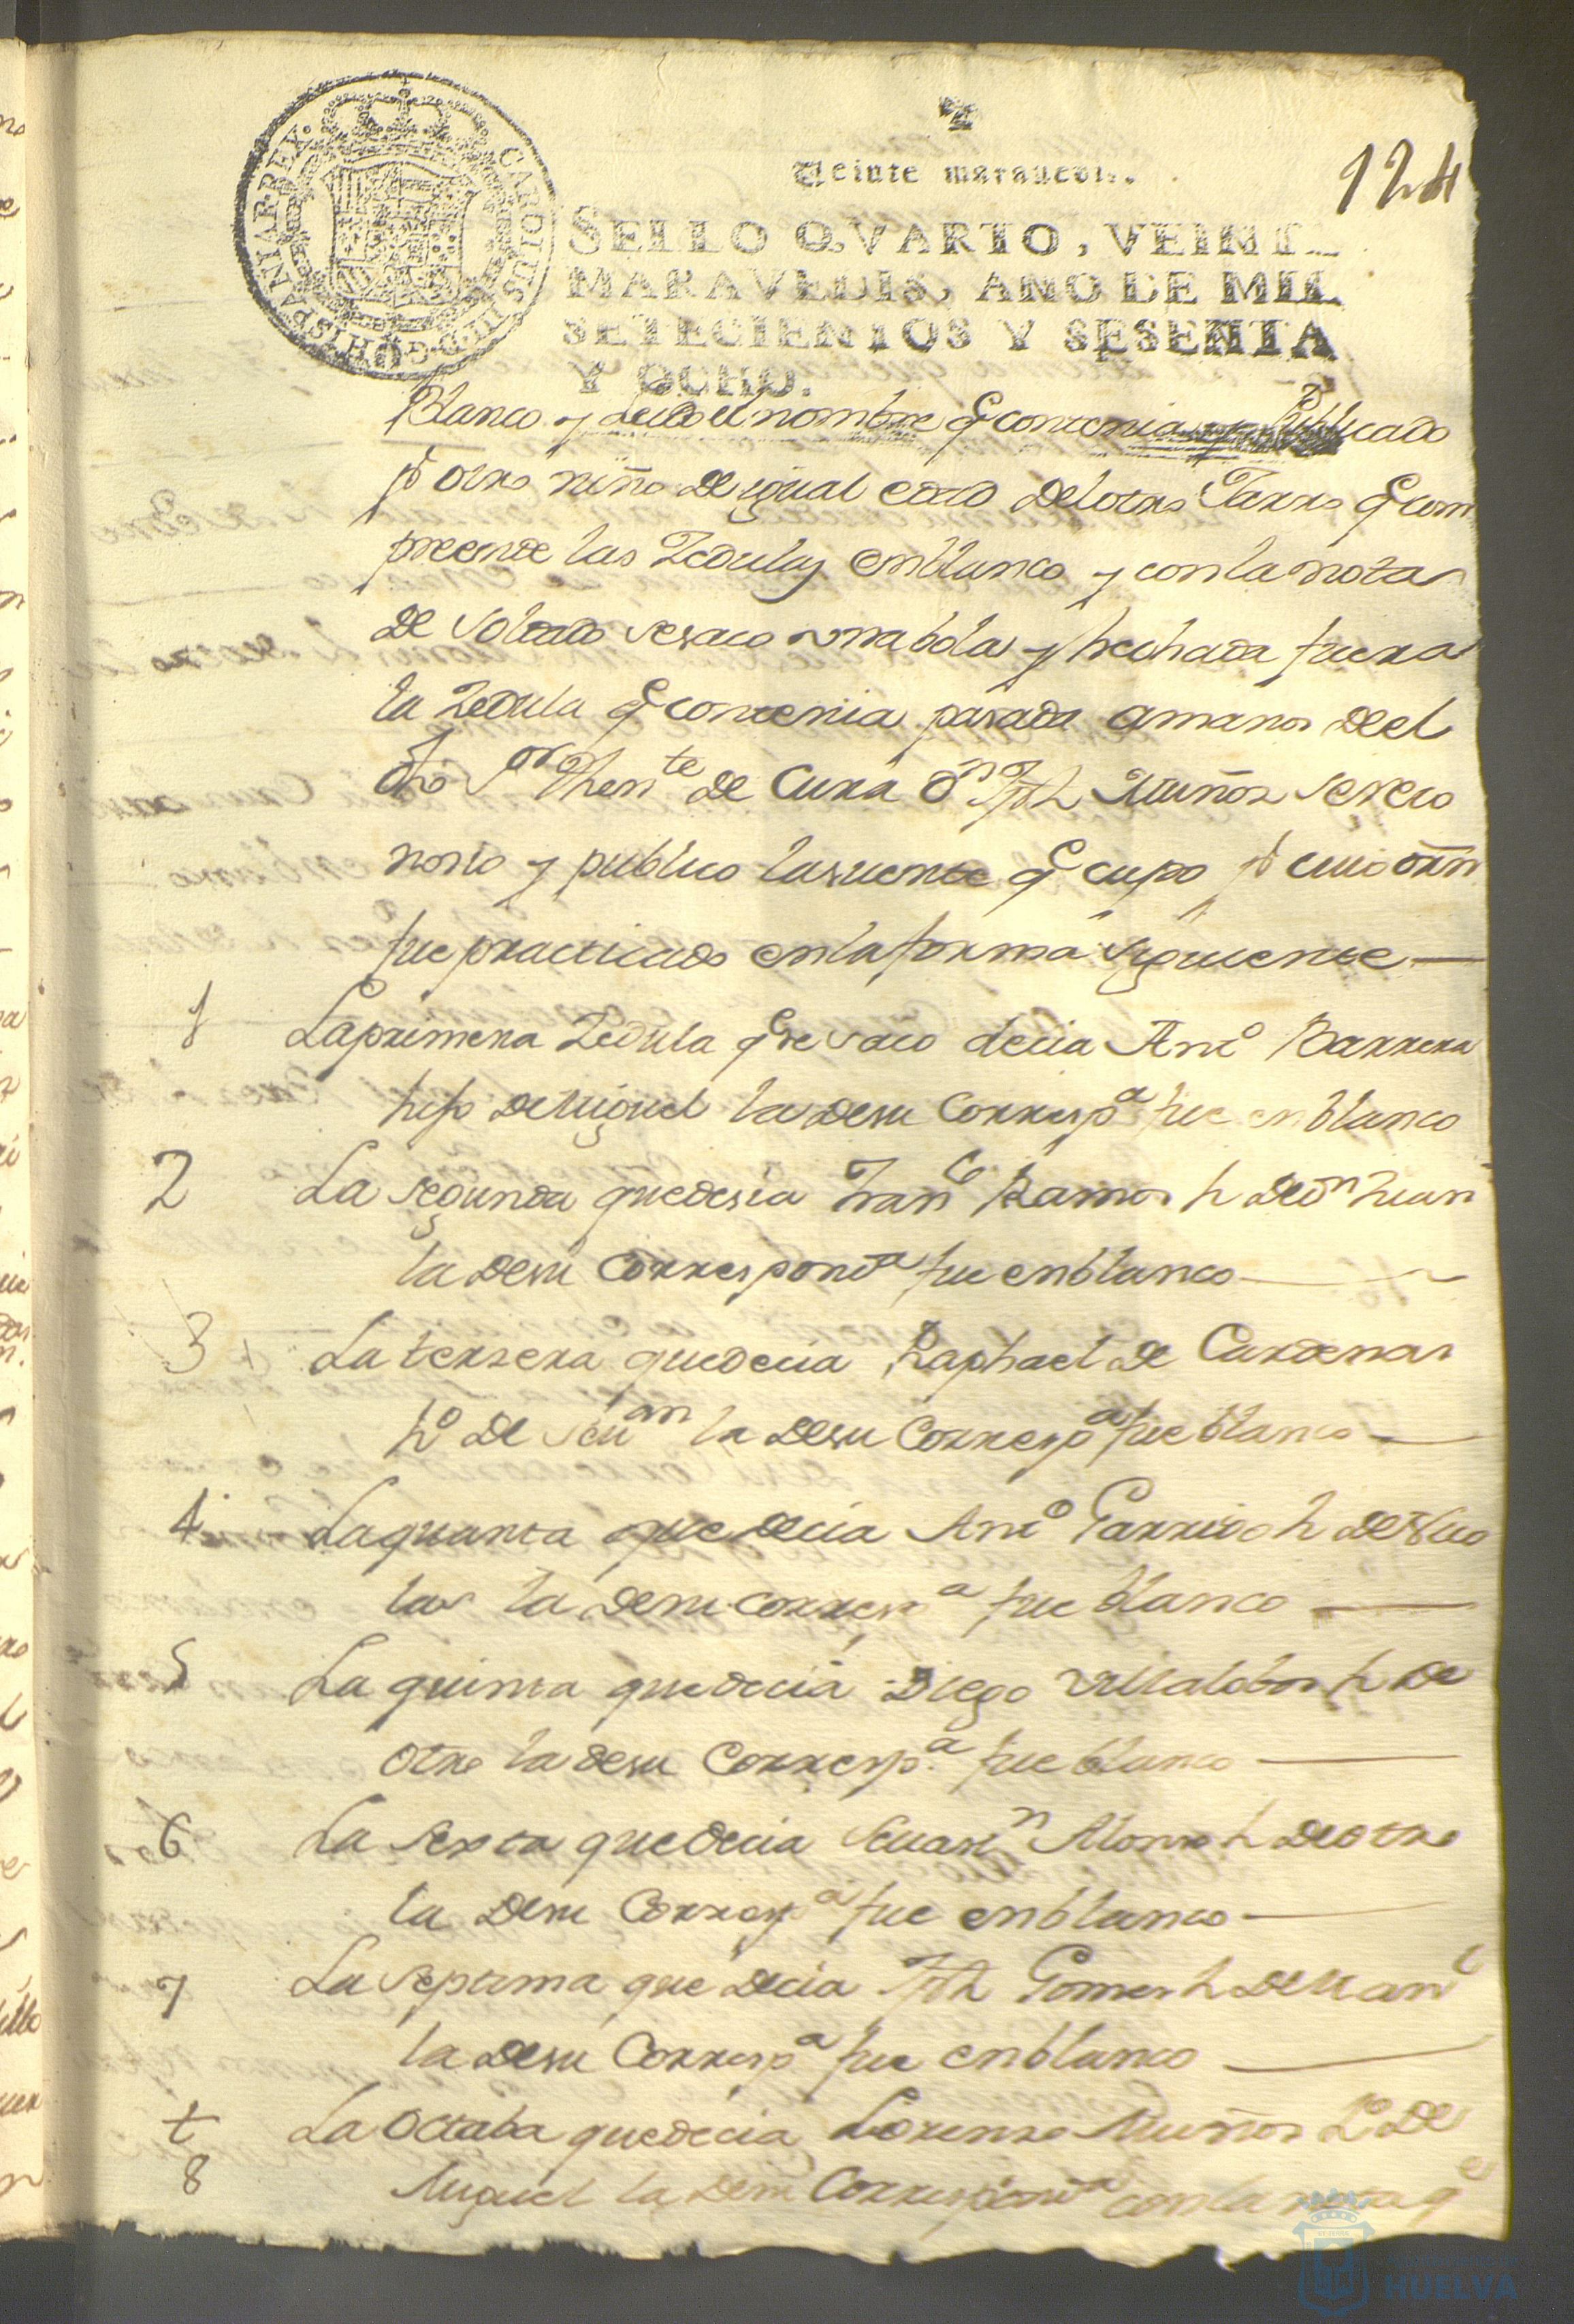 124
Veinte maravedis.
SELLO QVARTO, VEINTE
MARAVEDIS, AÑO DE MIL
SETECIENTOS Y SESENTA
Y OCHO.
CAROLUS III D G HISPANIAR REX
Blanco y leido el nombre q contenia y publicado
p otro niño de igual edad del otro Jarro q com
preende las Zedulas en blanco y con la nota
de Soldado se saco una bola y hechada fuera
la Zedula q contenia pasada a manos de el
dho Sor Thente de Cura Dn Jph Muños se reco
nosio y publico la suerte q cupo p cuio orn
fue practicado en la forma siguiente
1 La primera Zedula q se saco decia Anto Barrera
hijo de Miguel la de su Correspa fue en blanco
2 La segunda que desia Franco Ramos h de Dn Juan
la de su Correspondа fue en blanco
3 La tersera que decia Raphael de Cardenas
ho de Seuan la de su Correspa fue blanco
4 La quarta que decia Anto Garrido h de Nico
las la de su correspa fue blanco
5 La quinta que decia Diego Villalobos h de
otro la de su Correspa fue blanco
6 La sexta que decia Seuasn Alonso h de otro
la de su Correspa fue en blanco
7 La septima que decia Jph Gomes h de Manl
la de su Correspa fue en blanco
t La Octaba que decia Lorenso Muños ho de
8 Miguel la de su Correspondа con la nota q
HUELVA